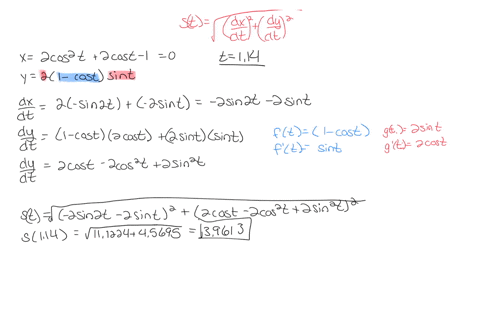 s(t)=√((dx/dt)²+(dy/dt)²)
x= 2cos²t +2cost-1 =0 t=1.14
y= 2(1-cost)sint
dx/dt = 2(-sin2t)+(-2sint) = -2sin2t -2sint
dy/dt = (1-cost)(2cost) +(2sint)(sint) f(t)=(1-cost) g(t)=2sint
f'(t)= sint g'(t)=2cost
dy/dt = 2cost -2cos²t +2sin²t
s(t)=√((-2sin2t -2sint)² + (2cost -2cos²t +2sin²t)²)
s(1.14) = √(11.1224+4.5695) = 3.9613